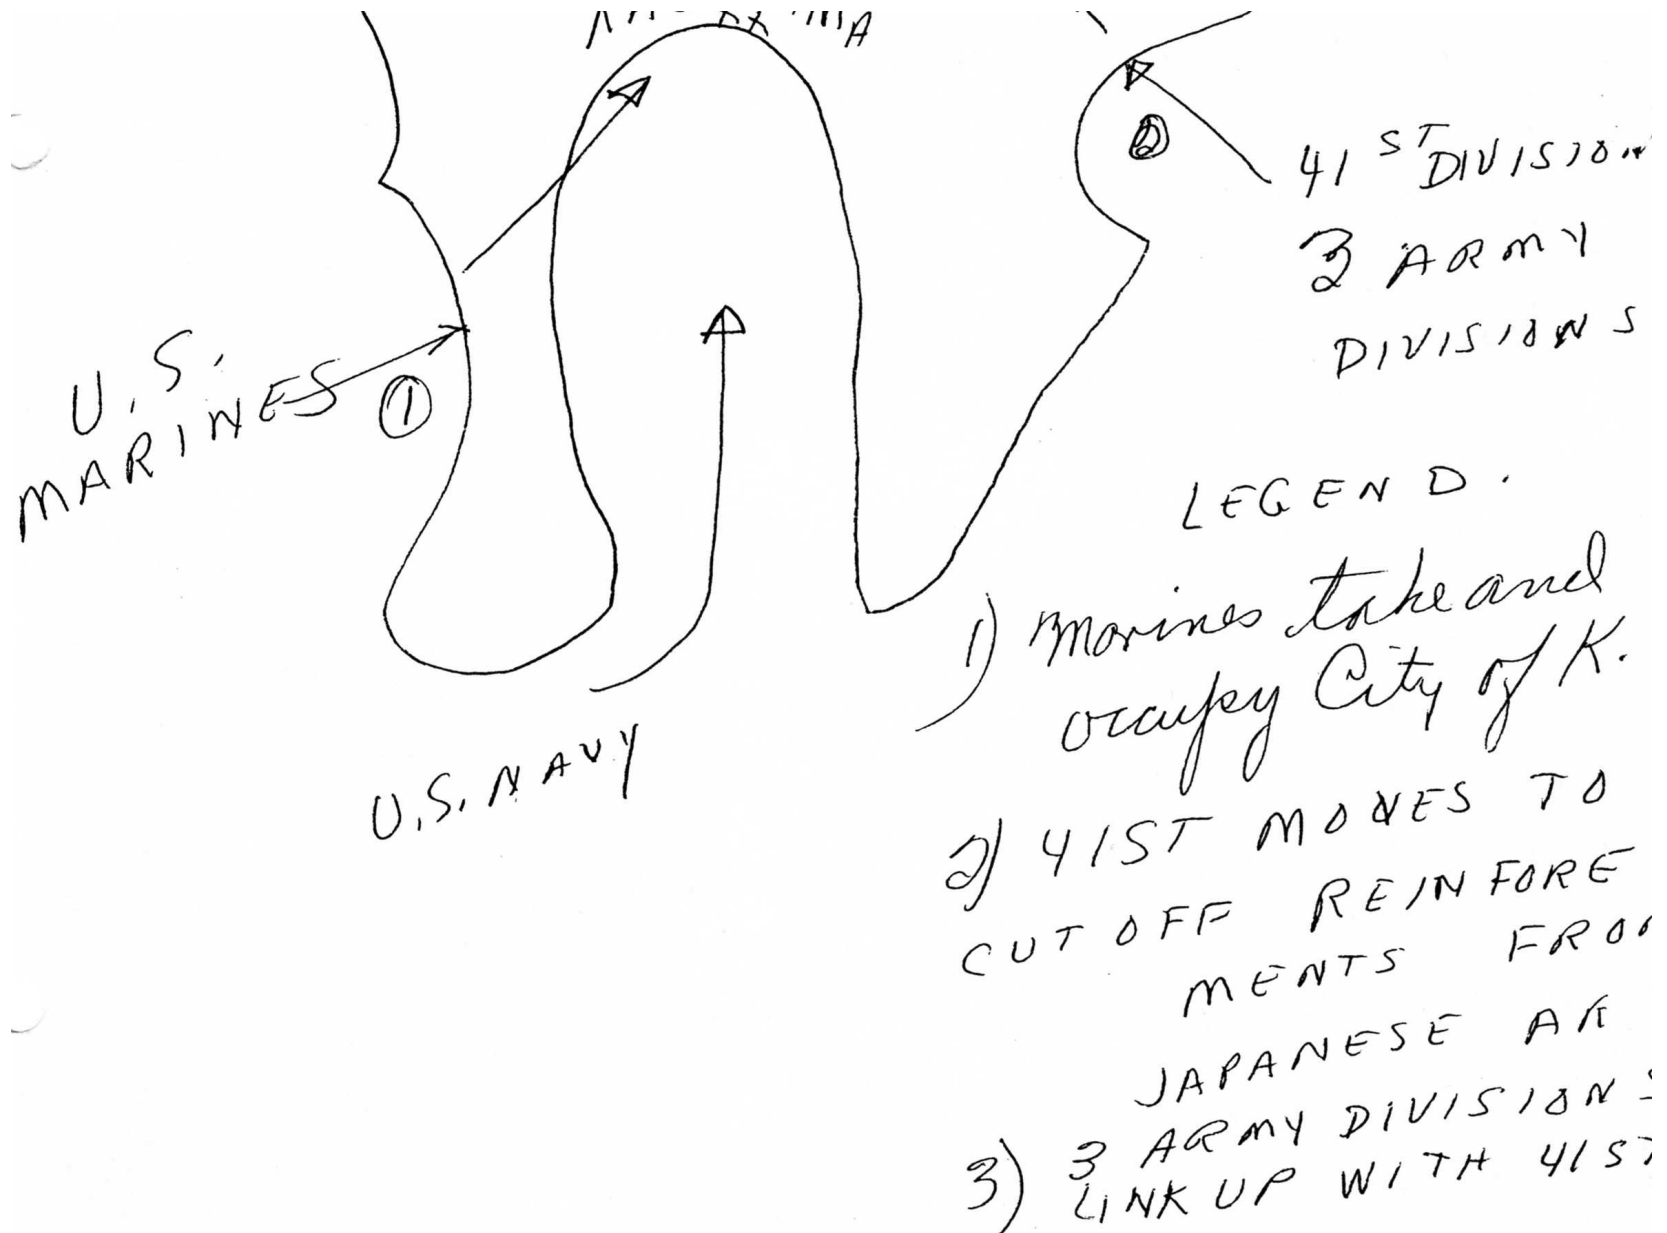 41ST DIVISION
3 ARMY
DIVISIONS
U.S.
MARINES
1
2
LEGEND.
1) Marines take and
occupy City of K.
U.S. NAVY
2) 41ST MOVES TO
CUT OFF REINFORE
MENTS FROM
JAPANESE AR
3) 3 ARMY DIVISIONS
LINK UP WITH 41ST